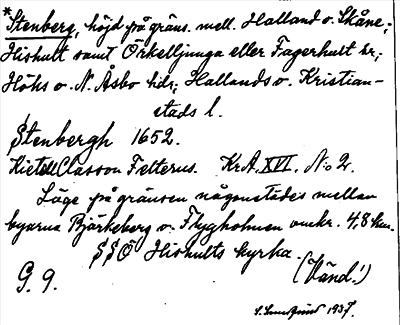 *Stenberg, höjd på gräns. mell. Halland o. Skåne;
Hishult samt Örkelljunga eller Fagerhult sr;
Höks o. N. Åsbo hdr; Hallands o. Kristian-
stads l.
Stenbergh 1652.
Kietell Classon Felterus. KrA. XVI. N:o 2.
Läge på gränsen någonstädes mellan
byarna Björkeberg o. Flygholmen omkr. 4,8 km.
SSÖ Hishults kyrka.
(Vänd!)
G. 9.
1937.